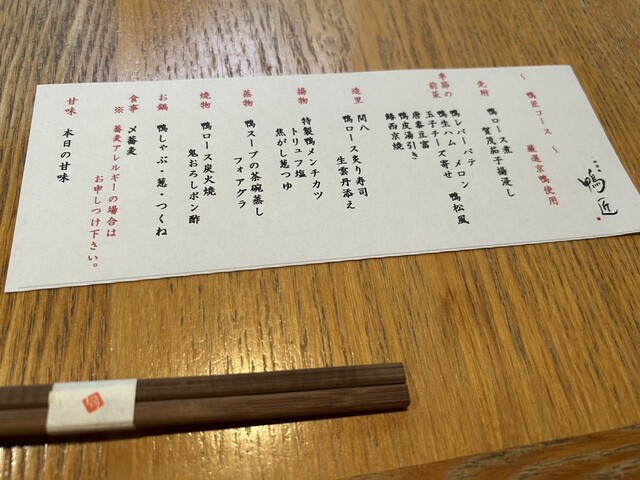 鴨匠
～ 鴨匠コース ～ 厳選京鴨使用
先附
鴨ロース煮
賀茂茄子揚浸し
季節の
前菜
鴨レバーパテ 鴨松風
鴨生ハム メロン
玉子チーズ寄せ
唐黍豆富
鴨皮湯引き
鰆西京焼
造里
間八
鴨ロース炙り寿司
生雲丹添え
揚物
特製鴨メンチカツ
トリュフ塩
焦がし葱つゆ
蒸物
鴨スープの茶碗蒸し
フォアグラ
焼物
鴨ロース炭火焼
鬼おろしポン酢
お鍋
鴨しゃぶ・葱・つくね
食事
〆蕎麦
※ 蕎麦アレルギーの場合は
お申しつけ下さい。
甘味
本日の甘味